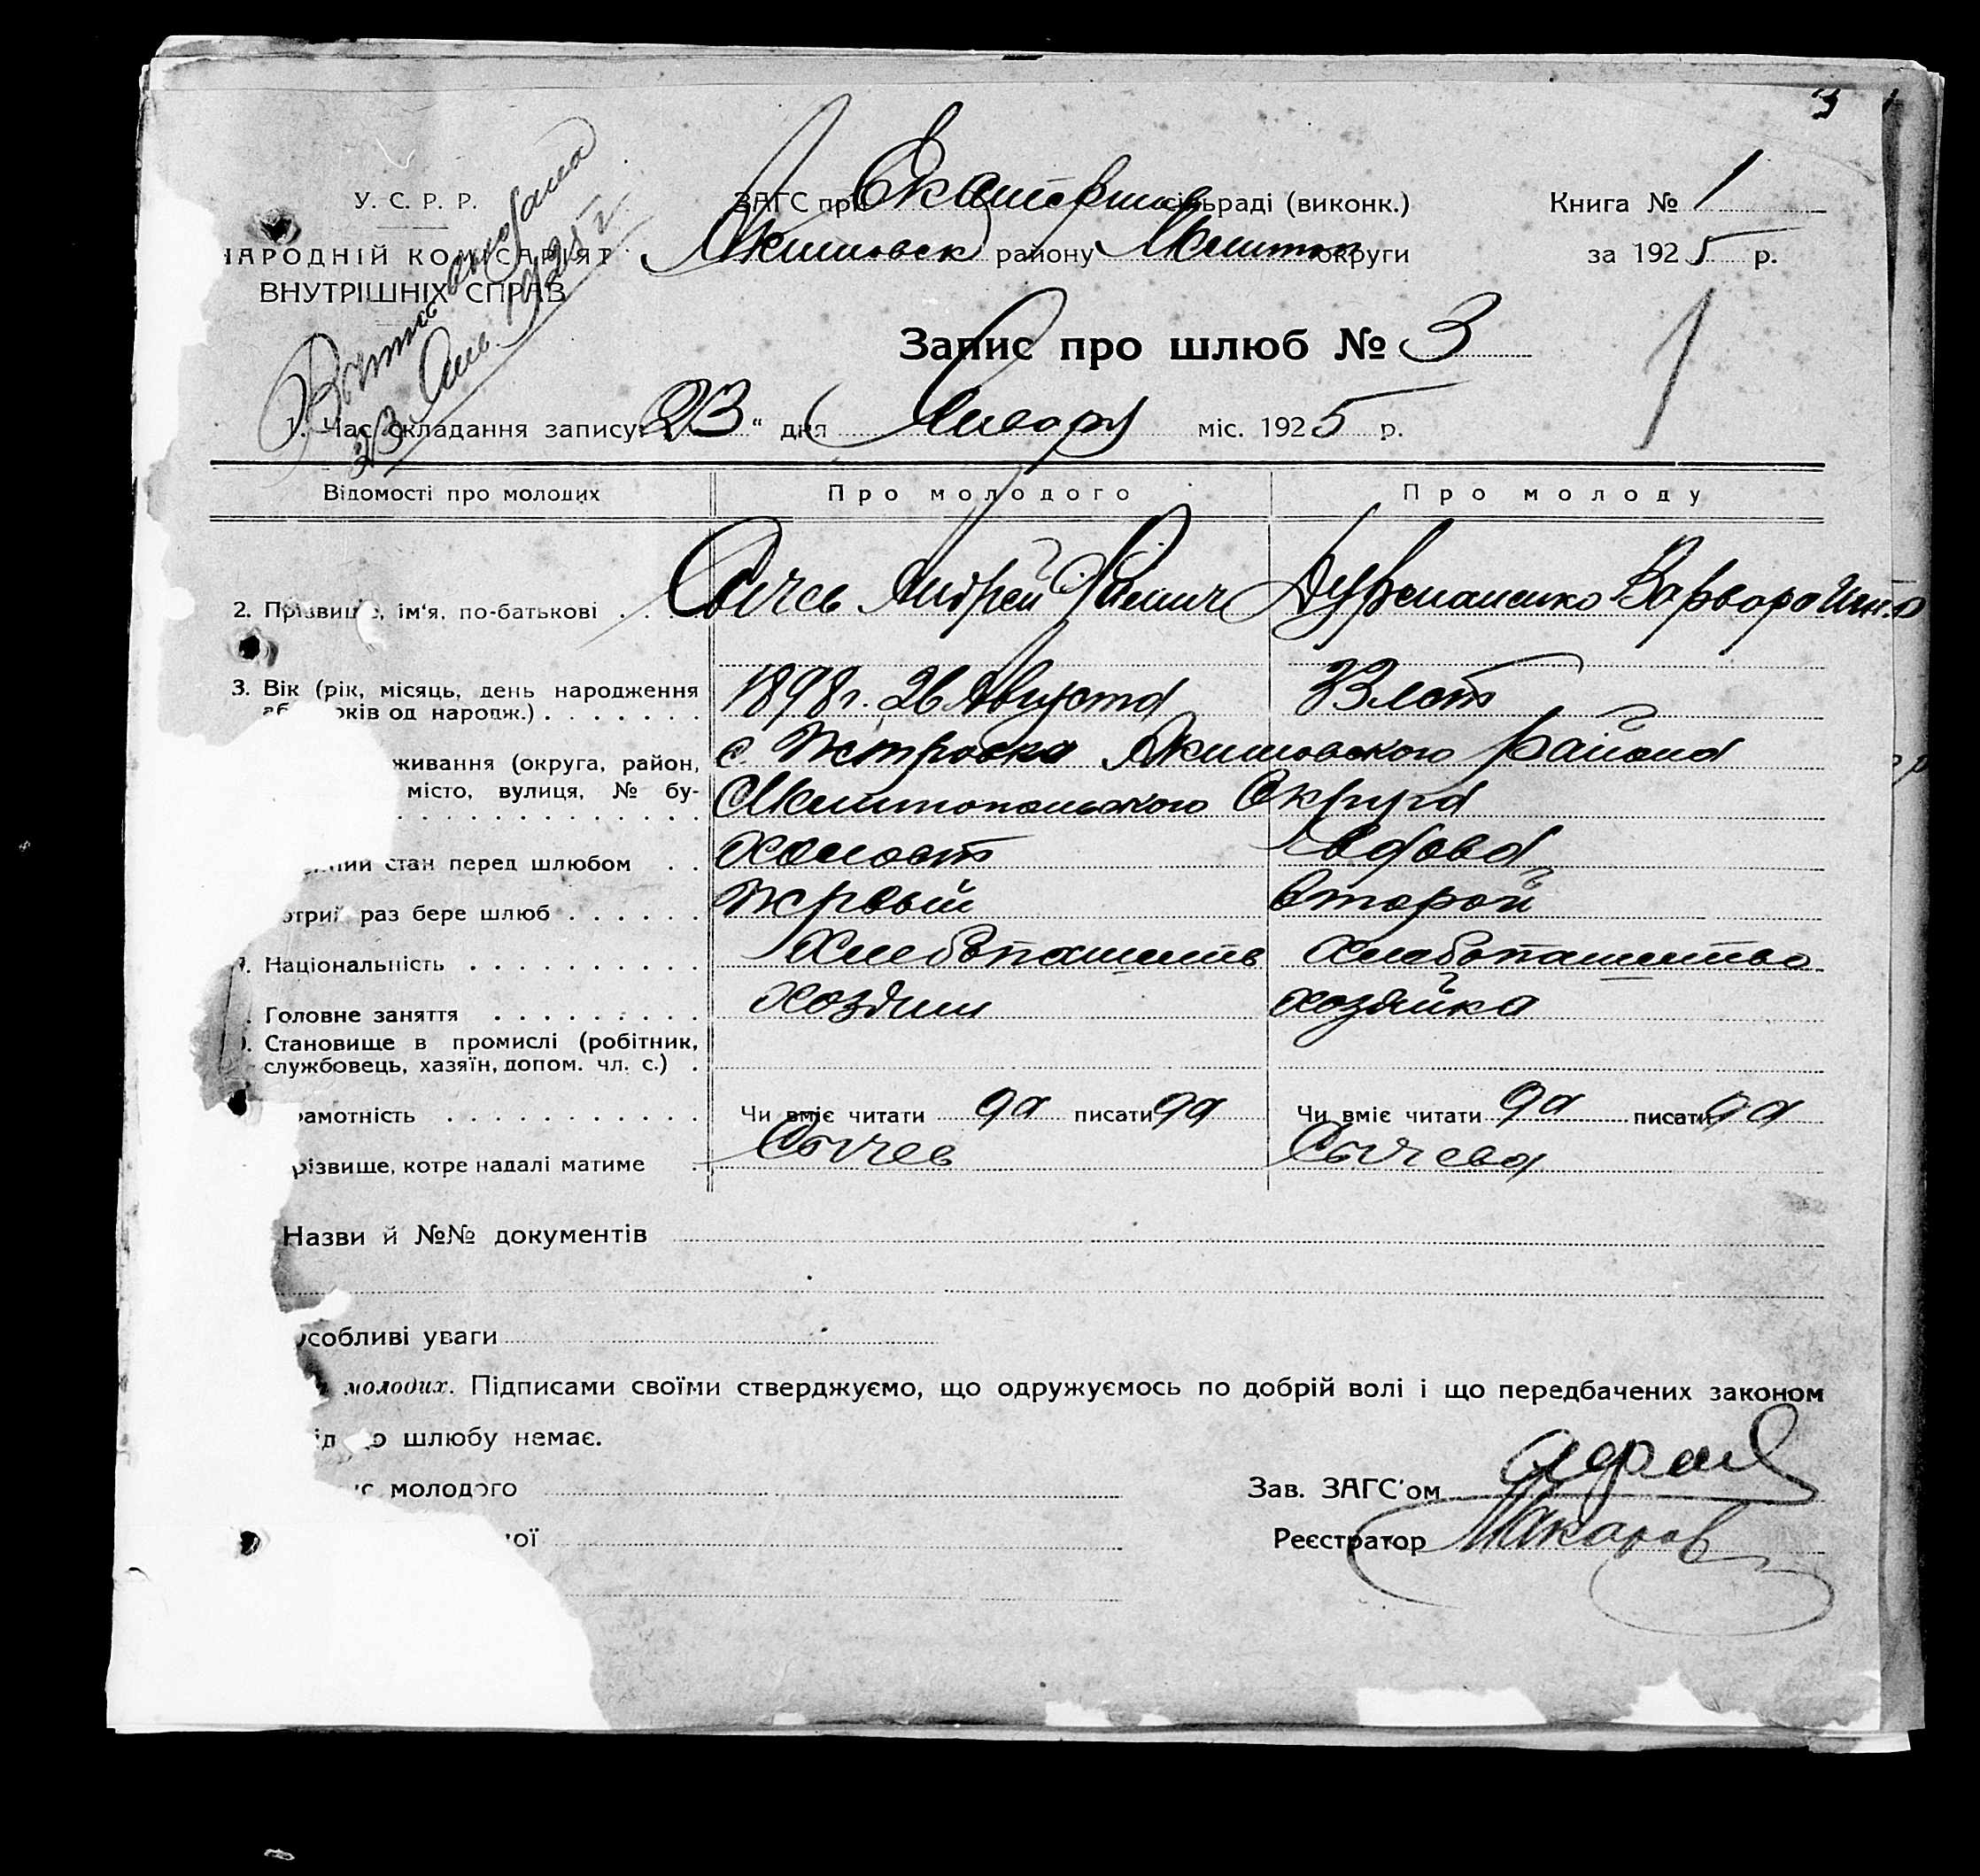 3
У. С. Р. Р.
НАРОДНІЙ КОМІСАРІЯТ
ВНУТРІШНІХ СПРАВ
23 Янв. 1925 г.
ЗАГС при Екатерин сільраді (виконк.)
Акимовск району Мелитоп округи
Книга № 1
за 1925 р.
Запис про шлюб № 3
1
1. Час складання запису: „23“ дня Января міс. 1925 р.
Відомості про молодих
Про молодого
Про молоду
2. Прізвище, ім'я, по-батькові
Сычев Андрей
Варвара
3. Вік (рік, місяць, день народження
або років од народж.)
1898 г. 26 Августа
33 лет
живання (округа, район,
місто, вулиця, № бу-
с. Петровка Акимовского Района
Мелитопольского Округа
стан перед шлюбом
холост
вдова
котрий раз бере шлюб
Первый
второй
Національність
Хлебопашеств
Хлебопашество
Головне заняття
хозяин
хозяйка
Становище в промислі (робітник,
службовець, хазяїн, допом. чл. с.)
рамотність
Чи вміє читати да писати да
Чи вміє читати да писати да
різвище, котре надалі матиме
Сычев
Сычева
Назви й №№ документів
особливі уваги
молодих. Підписами своїми стверджуємо, що одружуємось по добрій волі і що передбачених законом
до шлюбу немає.
молодого
Зав. ЗАГС'ом
ої
Реєстратор Макаров